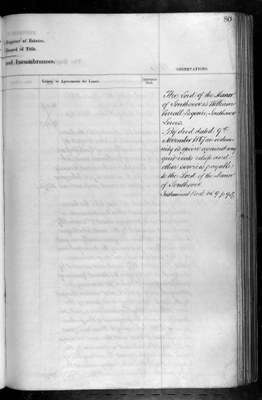 80
Register of Estates.
Record of Title.
and Incumbrances.
OBSERVATIONS.
Leases or Agreements for Leases.
The Lord of the Manor
of Southover is William
Verrall Esquire, Southover
Lewes
By deed dated 9th
November 1887 an indem-
nity is given against any
quit rents reliefs and
other services payable
to the Lord of the Manor
of Southover
Instrument Book No 9 p. 95.